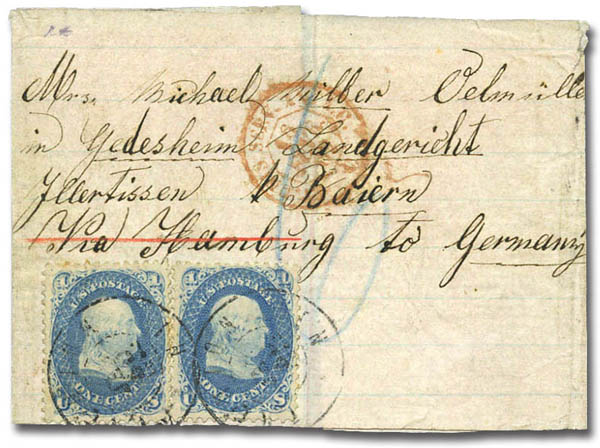 Mrs. Michael Hilber Oelmülle
in Gedesheim Landgericht
Illertissen Baiern
Via Hamburg to Germany
U.S. POSTAGE
ONE CENT
U.S. POSTAGE
ONE CENT